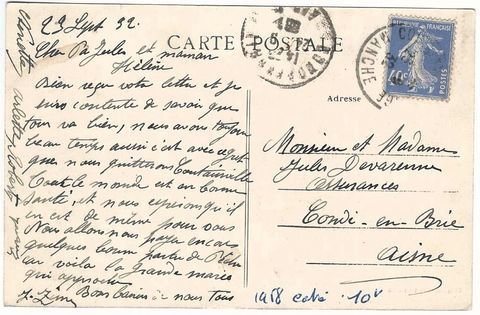 29 Sept 32.
Cher Pa Jules et maman
Hélène
CARTE POSTALE
Bien reçu votre lettre et je
suis contente de savoir que
tout va bien, nous avons toujours
beau temps aussi c'est avec regret
que nous quitterons Coutainville
Tout le monde est en bonne
santé, et nous espérons qu'il
en est de même pour vous
Nous allons nous payer encore
quelques bonne partie de Pêche
car voila la grande marée
qui approche
Bons baisers de nous Tous
Adresse
Monsieur et Madame
Jules Devarenne
Assurances
Condé-en-Brie
Aisne
RÉPUBLIQUE FRANÇAISE
40c
POSTES
MANCHE
1958 10